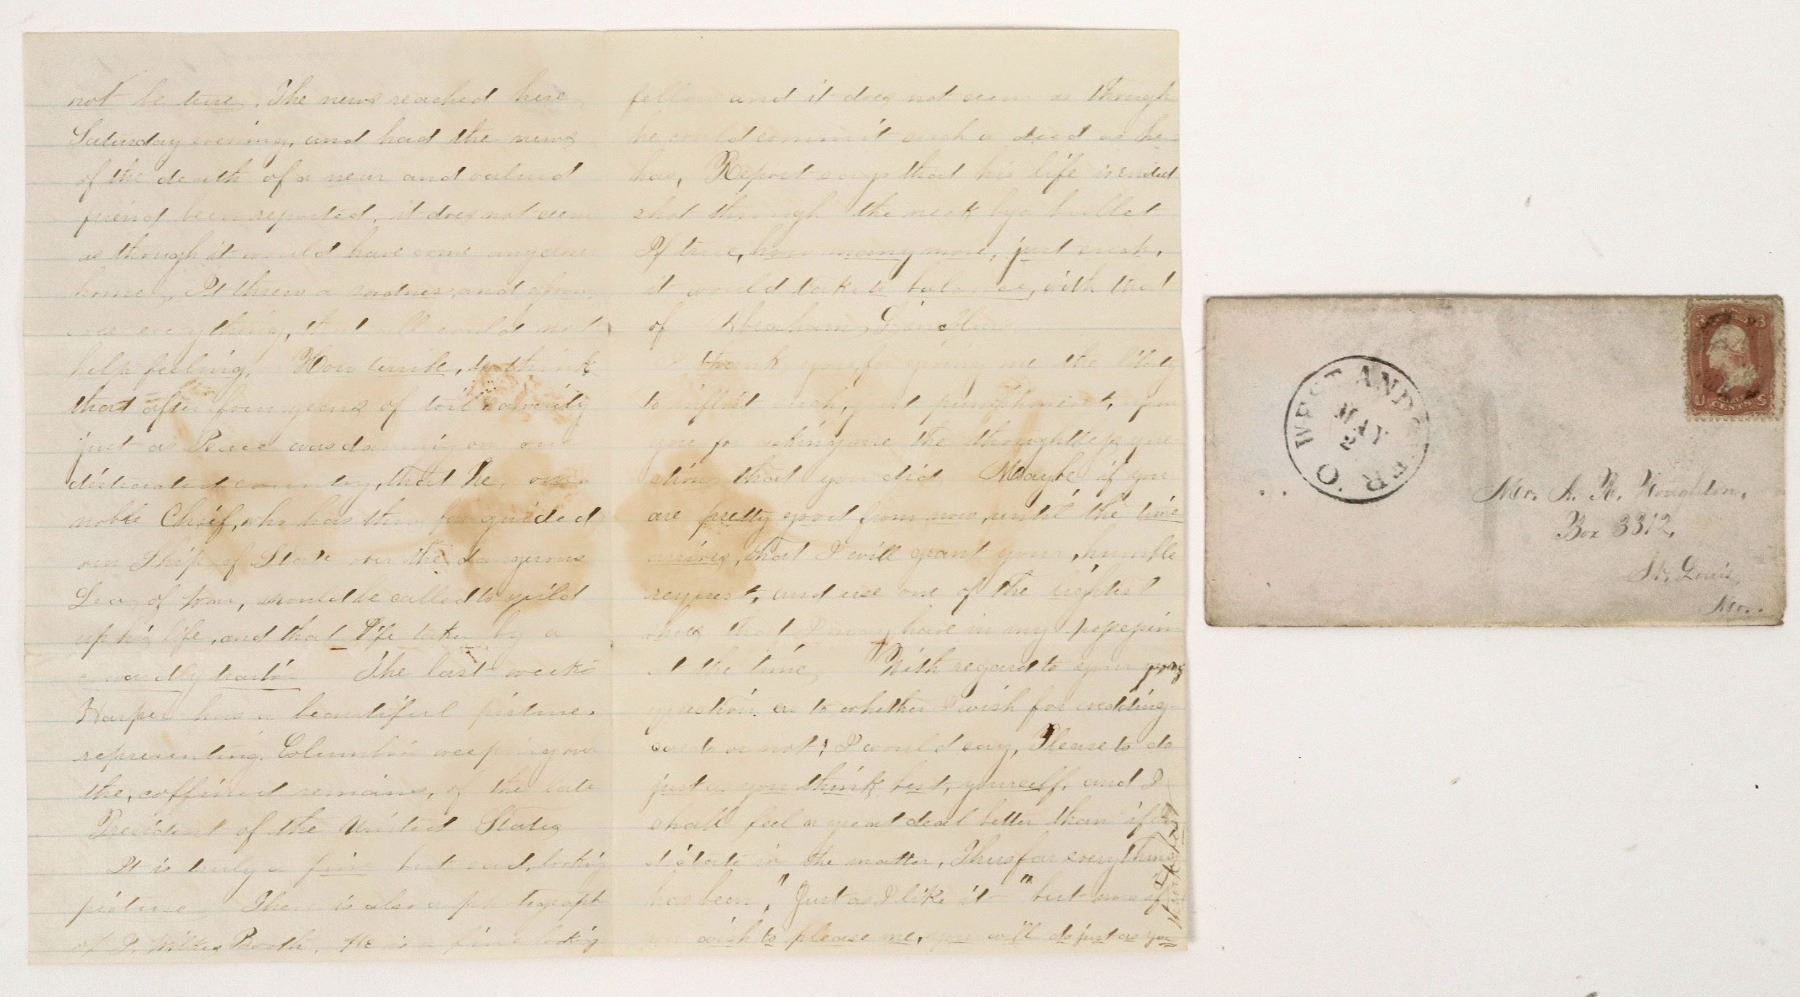 not be true. The news reached here
Saturday evening, and had the news
of the death of a near and valued
friend been reported, it does not seem
as though it would have come any closer
home. It threw a sadness and gloom
over everything, that all could not
help feeling. How terrible, to think
that after four years of toil
just as Peace was dawning on our
distracted country, that he, our
noble Chief, who has thus far guided
our Ship of State over the dangerous
Sea of war, should be called to yield
up his life, and that life taken by a
cowardly traitor. The last week's
Harper has a beautiful picture,
representing, Columbia weeping over
the, coffined remains, of the late
President of the United States
It is truly a fine but sad, looking
picture. There is also a photograph
of J. Wilkes Booth. He is a fine looking
fellow and it does not seem as though
he could commit such a deed as he
has, Report says that his life is ended
shot through the neck by a bullet
If true, how many more, just such,
it would take to balance, with that
of Abraham Lincoln.
thank you for giving me the liberty
to inflict such, punishment, upon
you for asking me the
that you did Maybe if you
are pretty good from now, until the time
arrives, that I will grant your, humble
request, and use one of the lightest
ones that I may have in my possession
at the time. With regard to your
question as to whether I wish for wedding
cards or not; I would say, Please to do
just as you think best, yourself, and I
shall feel a great deal better than if I
dictate in the matter, Thus far everything
has been, "Just as I like it" but now if
you wish to please me, you will do just as you
WEST ANDOVER O.
MAY
2
U 3 CENTS S
Mr. A. R. Houghton,
Box 3312,
St. Louis,
Mo.